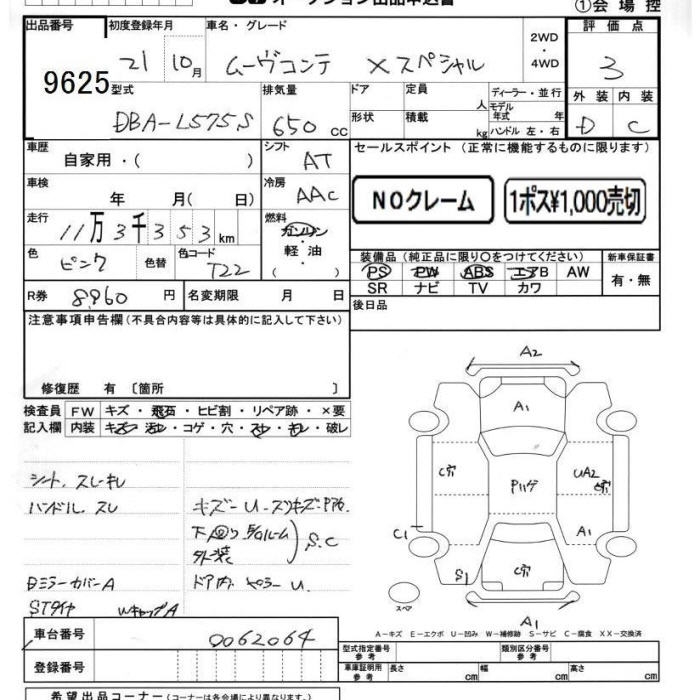 オークション出品申込書
①会場控
出品番号
9625
初度登録年月
21 10月
車名・グレード
ムーヴコンテ Xスペシャル
2WD・4WD
評価点
3
外装 内装
D C
型式
DBA-L575S
排気量
650 cc
ドア
形状
定員 人
積載 kg
ディーラー・並行
モデル年式 年
ハンドル 左・右
車歴
自家用・( )
シフト
AT
セールスポイント (正常に機能するものに限ります)
NOクレーム
1ポス¥1,000売切
車検
年 月( 日)
冷房
AAC
走行
11万3千353km
燃料
ガソリン
軽油
( ・ )
色
ピンク
色替
色コード
T22
装備品 (純正品に限り○をつけてください)
PS PW ABS エアB AW
SR ナビ TV カワ
新車保証書
有・無
R券 8960 円
名変期限 月 日
後日品
注意事項申告欄 (不具合内容等は具体的に記入して下さい)
修復歴 有 〔箇所 〕
検査員記入欄
FW キズ・飛石・ヒビ割・リペア跡・×要
内装 キズ・汚レ・コゲ・穴・スレ・キレ・破レ
シート、スレキレ
ハンドル、スレ
キズー U
下回り
外装
S.C
Dミラーカバー A
STタイヤ
WキャップA
ドア内
U.
A2
A1
C穴
Pハゲ
UA2
C1
A1
S1
C穴
スペア
A1
A-キズ E-エクボ U-凹み W-補修跡 S-サビ C-腐食 XX-交換済
車台番号
0062064
登録番号
型式指定番号 参考
類別区分番号 参考
車庫証明用 参考
長さ cm
幅 cm
高さ cm
希望出品コーナー (コーナーは各会場により異なります。)